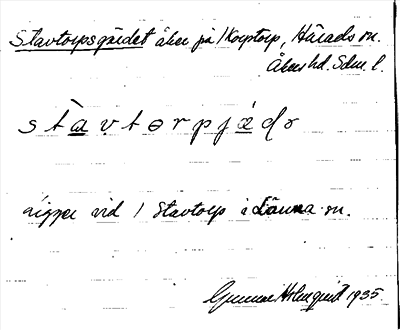 Stavtorpsgärdet åker på 1 Korptorp, Härads sn.
Åkers hd. Sdm. l.
stàvtərpjǽdɘ
ligger vid 1 Stavtorp i Länna sn.
Gunnar Holmquist 1935.